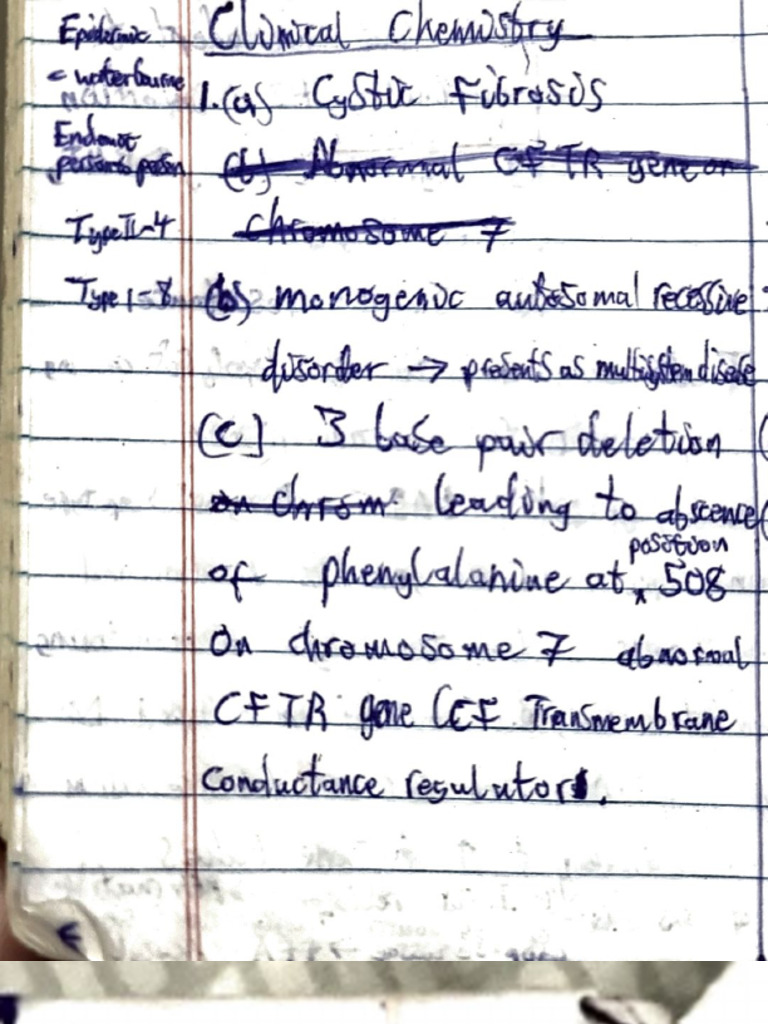 Clinical Chemistry
1.(a) Cystic Fibrosis
(b) Abnormal CFTR gene on
chromosome 7
(b) monogenic autosomal recessive
disorder → presents as multisystem disease
(c) 3 base pair deletion
on chrom leading to abscence
of phenylalanine at position 508
On chromosome 7 abnormal
CFTR gene (CF Transmembrane
Conductance regulator.
Epidemic
< waterbourne
Endemic
person to person
Type II-4
Type 1-8